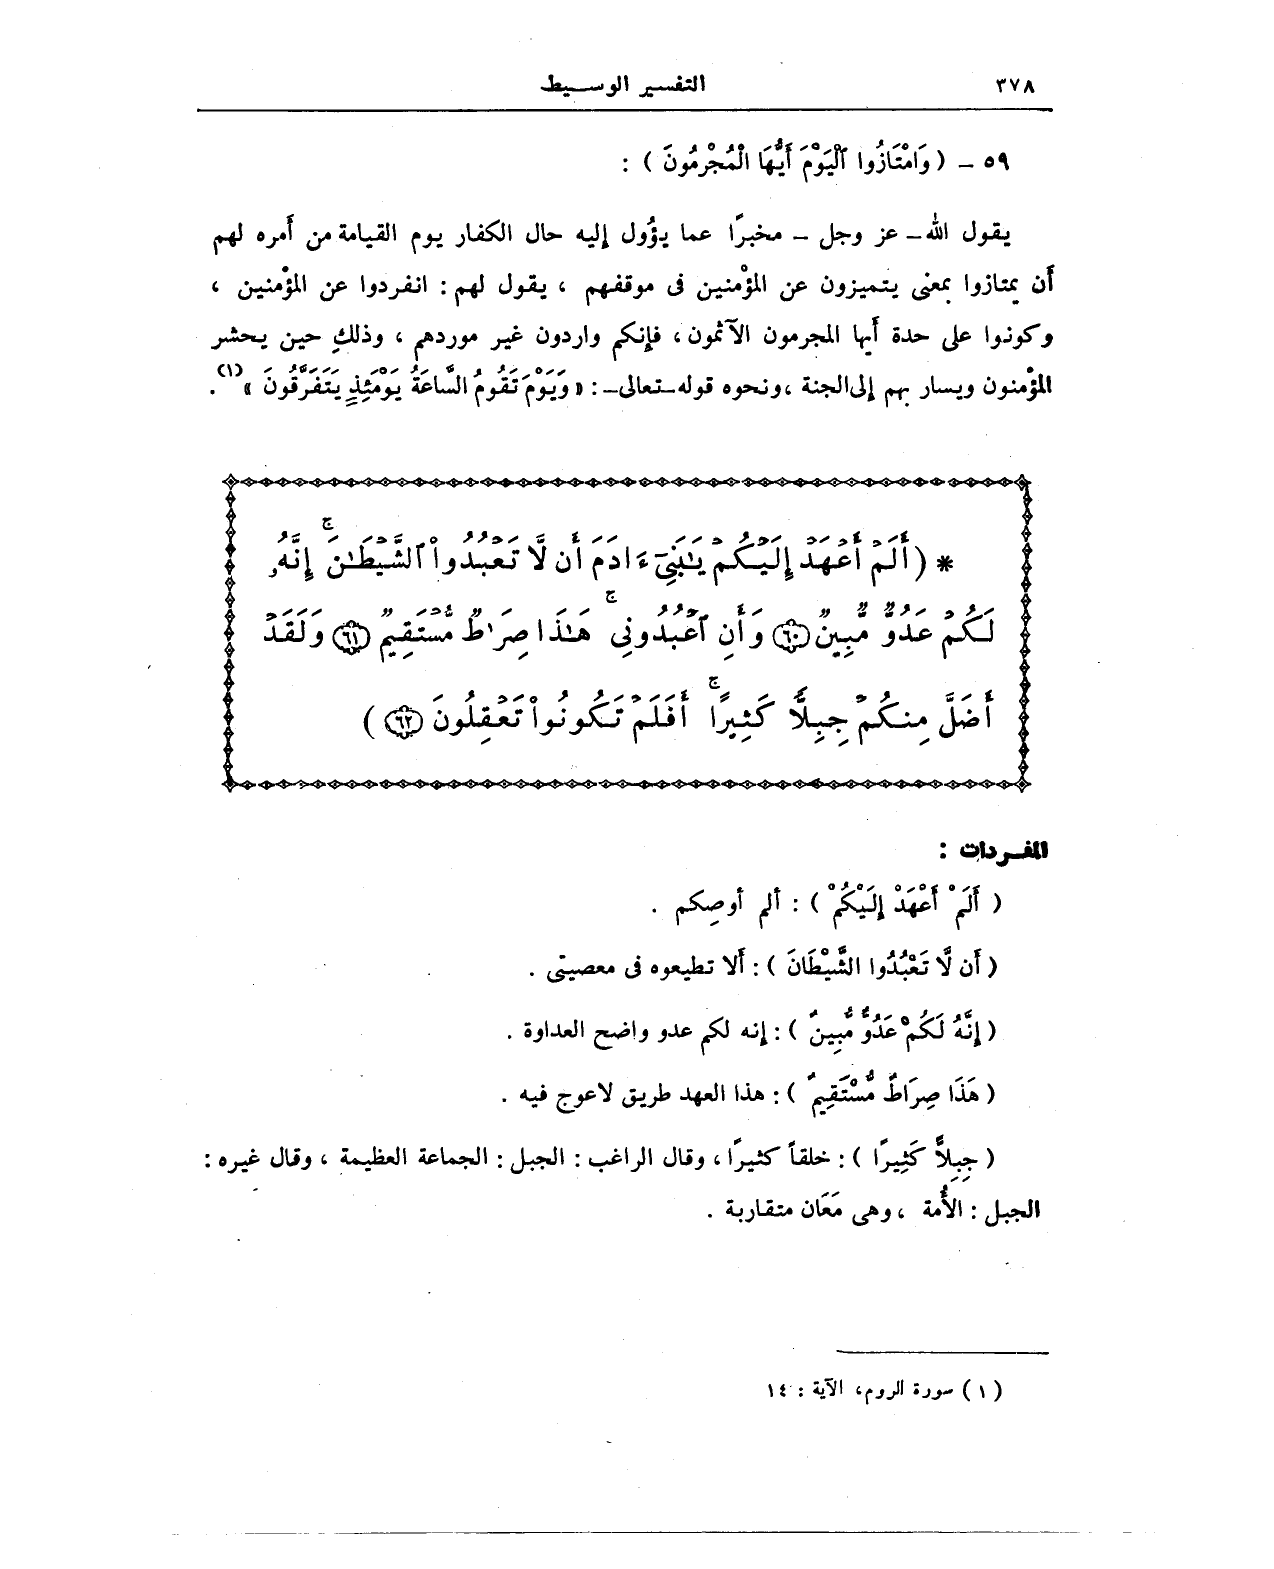 ٣٧٨
التفسير الوسيط
٥٩ ـ ( وَامْتَازُوا الْيَوْمَ أَيُّهَا الْمُجْرِمُونَ ) :
يقول الله ـ عز وجل ـ مخبرًا عما يؤُول إليه حال الكفار يوم القيامة من أَمره لهم
أَن يمتازوا بمعنى يتميزون عن المؤْمنين فى موقفهم ، يقول لهم : انفردوا عن المؤْمنين ،
وكونوا على حدة أَيها المجرمون الآثمون، فإِنكم واردون غير موردهم ، وذلك حين يحشر
المؤْمنون ويسار بهم إِلى الجنة ، ونحوه قوله ـ تعالى ـ : « وَيَوْمَ تَقُومُ السَّاعَةُ يَوْمَئِذٍ يَتَفَرَّقُونَ » (١) .
* ( أَلَمْ أَعْهَدْ إِلَيْكُمْ يَٰبَنِىٓ ءَادَمَ أَن لَّا تَعْبُدُوا۟ ٱلشَّيْطَٰنَ ۖ إِنَّهُۥ
لَكُمْ عَدُوٌّ مُّبِينٌ ۝٦٠ وَأَنِ ٱعْبُدُونِى ۚ هَٰذَا صِرَٰطٌ مُّسْتَقِيمٌ ۝٦١ وَلَقَدْ
أَضَلَّ مِنكُمْ جِبِلًّا كَثِيرًا ۖ أَفَلَمْ تَكُونُوا۟ تَعْقِلُونَ ۝٦٢ )
المفـردات :
( أَلَمْ أَعْهَدْ إِلَيْكُمْ ) : أَلم أُوصِكم .
( أَن لَّا تَعْبُدُوا الشَّيْطَانَ ) : أَلا تطيعوه فى معصيتى .
( إِنَّهُ لَكُمْ عَدُوٌّ مُّبِينٌ ) : إِنه لكم عدو واضح العداوة .
( هَذَا صِرَاطٌ مُّسْتَقِيمٌ ) : هذا العهد طريق لاعوج فيه .
( جِبِلاًّ كَثِيرًا ) : خلقاً كثيرًا ، وقال الراغب : الجبل : الجماعة العظيمة ، وقال غيره :
الجبل : الأُمة ، وهى مَعَان متقاربة .
( ١ ) سورة الروم، الآية : ١٤